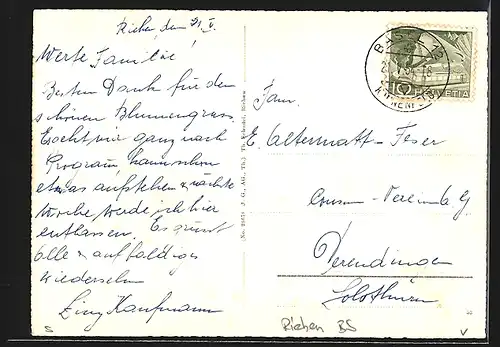 Riehen, den 21. V.
Werte Familie!
Besten Dank für den
schönen Blumengruss.
Es geht mir ganz nach
Program, kann schon
etwas aufstehen & nächste
Woche werde ich hier
entlassen. Es grüsst
alle & auf baldiges
Wiedersehn
Kaufmann
BASEL 12
HELVETIA
Fam.
E. Altermatt-Feser
Consum-Verein b. G
Derendingen
Solothurn
Riehen BS